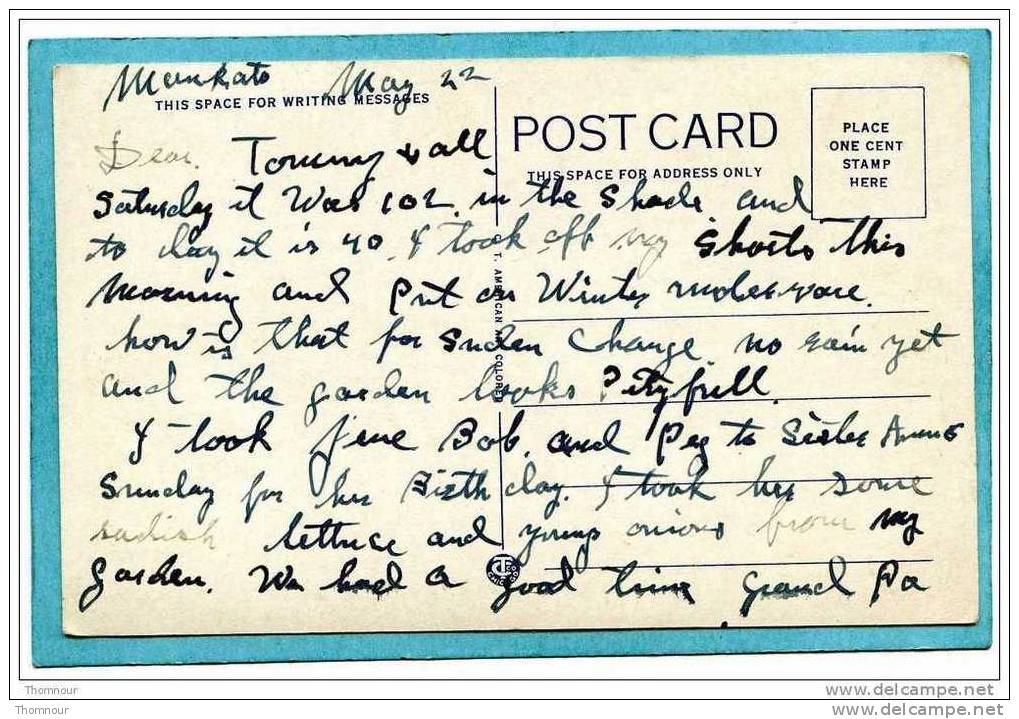 Mankato May 22
THIS SPACE FOR WRITING MESSAGES
POST CARD
THIS SPACE FOR ADDRESS ONLY
PLACE
ONE CENT
STAMP
HERE
Dear Tommy & all
Saturday it Was 102 in the Shade and
to day it is 40. I took off my Shorts this
Morning and Put on Winter underware.
how is that for Suden Change. no rain yet
and the garden looks Pityfull.
I took June Bob. and Peg to Sister Annas
Sunday for her Birth day. I took her some
radish lettuce and young onions from my
garden. We had a good time Grand Pa
C. T. AMERICAN ART COLORED
CT CO CHICAGO
Thomnour
Thomnour
www.delcampe.net
www.delcampe.net